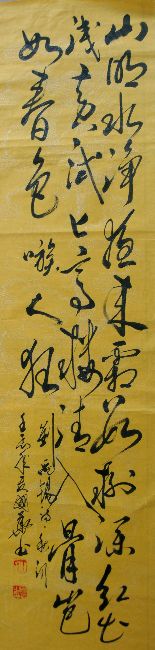 山明水净夜来霜数树深红出
浅黄试上高楼清入骨岂
如春色嗾人狂
刘禹锡诗秋词